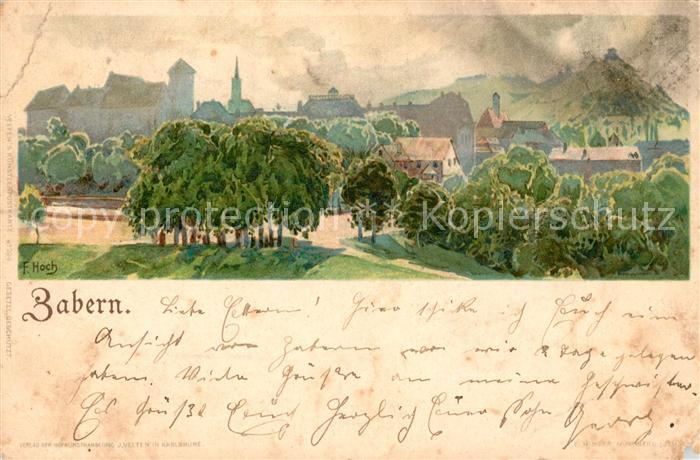 copyright protection · Kopierschutz
F. Hoch
Zabern.
Liebe Eltern! Hier schike ich Euch eine
Ansicht von Zabern wo wir 2 Tage gelegen
haben. Viele Grüße an meine Geschwister.
Es Grüßt Euch Herzlich Euer Sohn Georg.
VERLAG DER HOFKUNSTHANDLUNG J. VELTEN IN KARLSRUHE.
GESETZL. GESCHÜTZT.